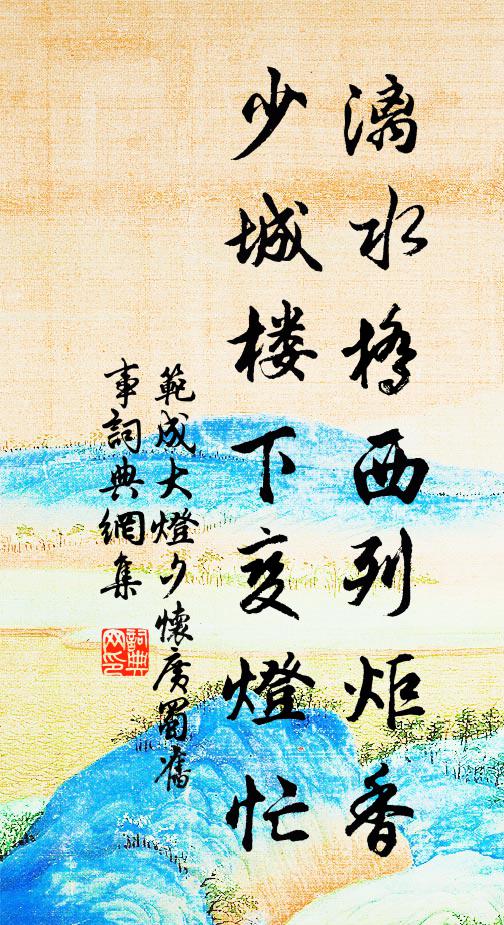 漓水橋西列炬香
少城楼下变燈忙
範成大燈夕懷廣蜀舊
事詞典網集
詞典
网印